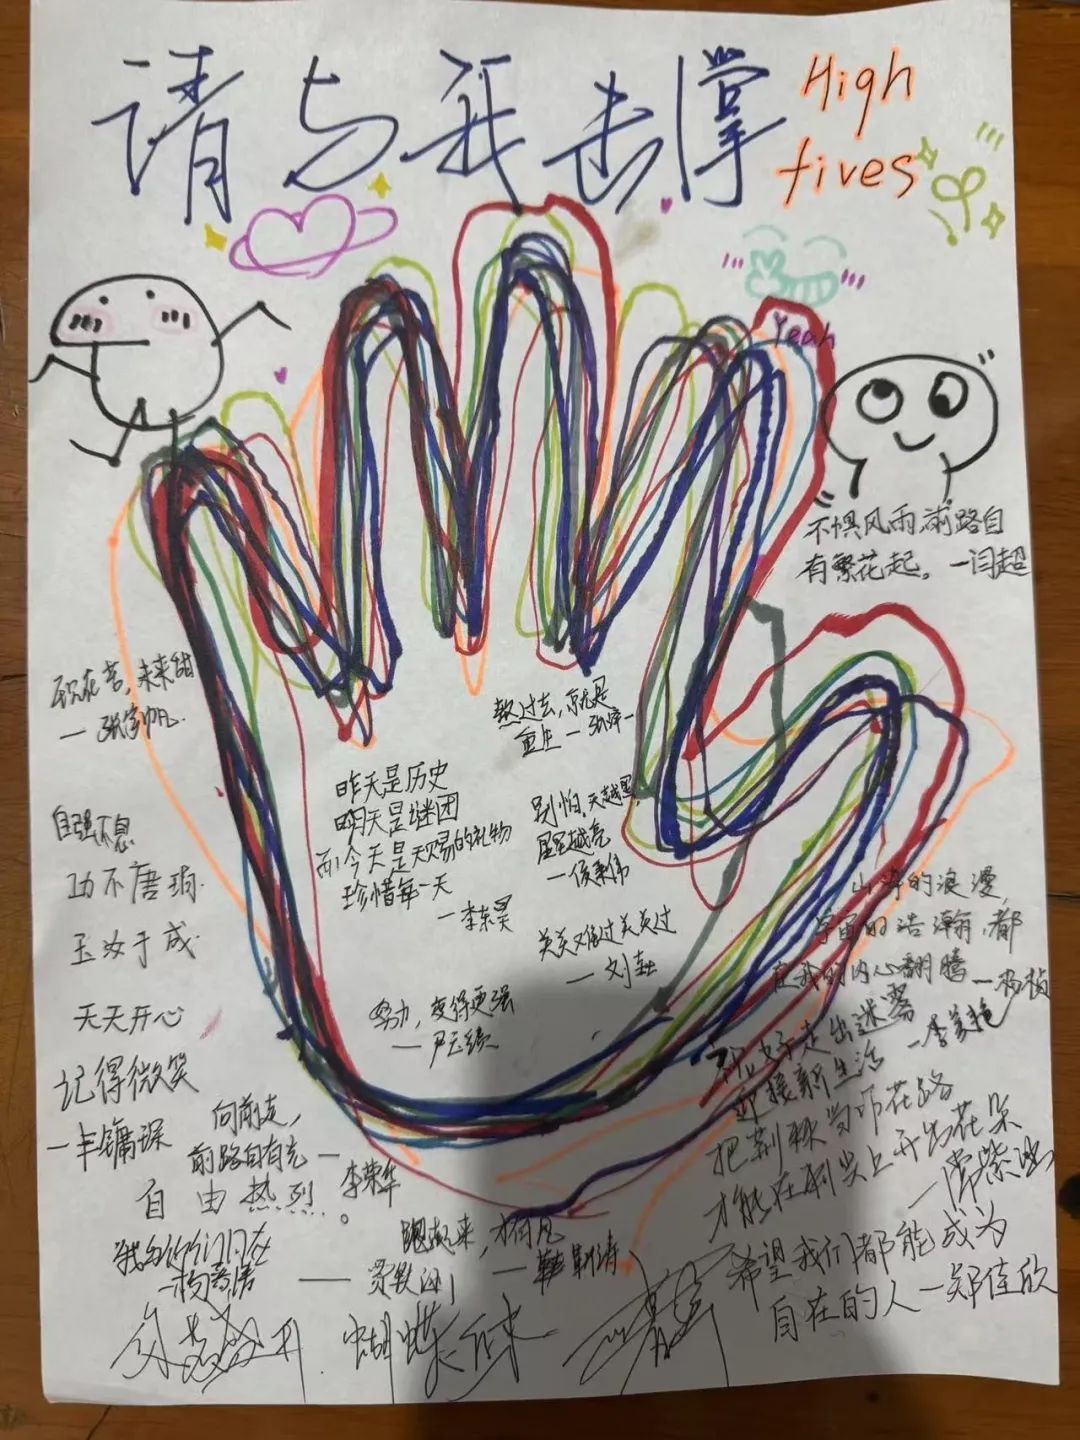 请与我击掌
High
fives
Yeah
不惧风雨 路自
有繁花起。—闫超
现在苦，未来甜
自强不息
功不唐捐
玉汝于成
天天开心
记得微笑
熬过去，就是
重生
昨天是历史
明天是谜团
而今天是天赐的礼物
珍惜每一天
—李东昊
别怕，天越黑，
星星越亮
关关难过关关过
努力，变得更强
山海的浪漫，
宇宙的浩瀚，都
在我的内心翻腾—杨桢
祝好走出迷雾
迎接新生活
把荆棘当作花路
才能在刺尖上开出花朵
希望我们都能成为
自在的人—郑佳欣
向前走，
前路自有光—
李荣华
自由热烈。
我与你们同在
跑起来，才有风
蝴蝶